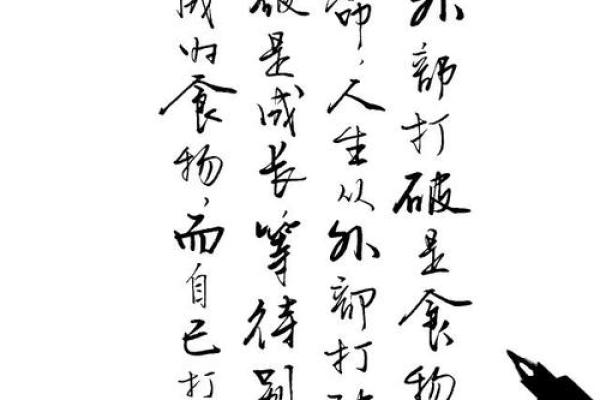 外部打破是食物
命,人生从外部打破
破是成长等待别
成的食物,而自己打